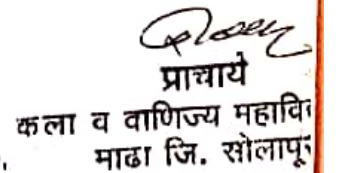 प्राचार्य
कला व वाणिज्य महावि
माढा जि. सोलापू